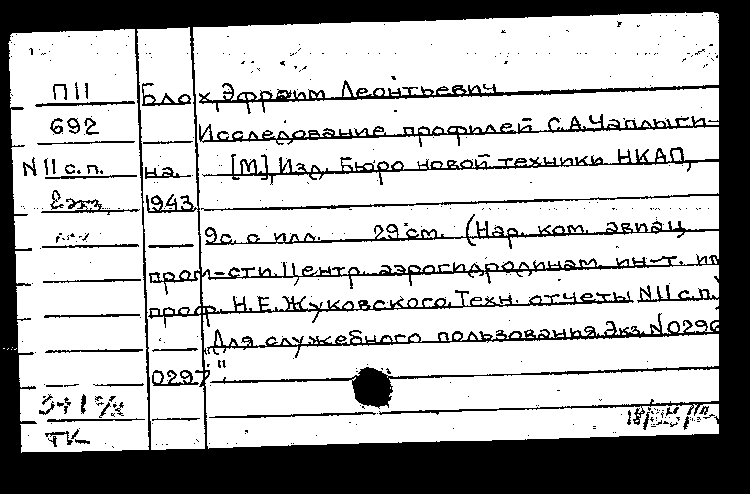 П11 Блох, Эфраим Леонтьевич
692 Исследование профилей С.А.Чаплыги-
N 11 с.п. на. [М.], Изд. Бюро новой техники НКАП,
2экз. 1943
9с. с илл. 29 см. (Нар. ком. авиац.
пром-сти. Центр. аэрогидродинам. ин-т. им
проф. Н.Е.Жуковского. Техн. отчеты N 11 с.п.)
"Для служебного пользования. Экз. N 0296
0297"
3+1
ТК